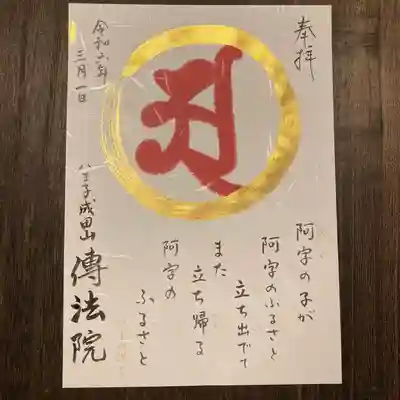 奉拝
𑖀
阿字の子が
阿字のふるさと
立ち出でて
また
立ち帰る
阿字の
ふるさと
令和六年
三月一日
八王子成田山
傳法院